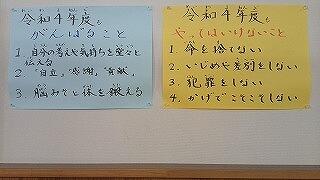 令和4年度も
がんばること
1. 自分の考えや気持ちを堂々と
伝える
2. “自立”、“感謝”、“貢献”
3. 脳みそと体を鍛える
令和4年度も
やってはいけないこと
1. 命を捨てない
2. いじめや差別をしない
3. 犯罪をしない
4. かげでこそこそしない